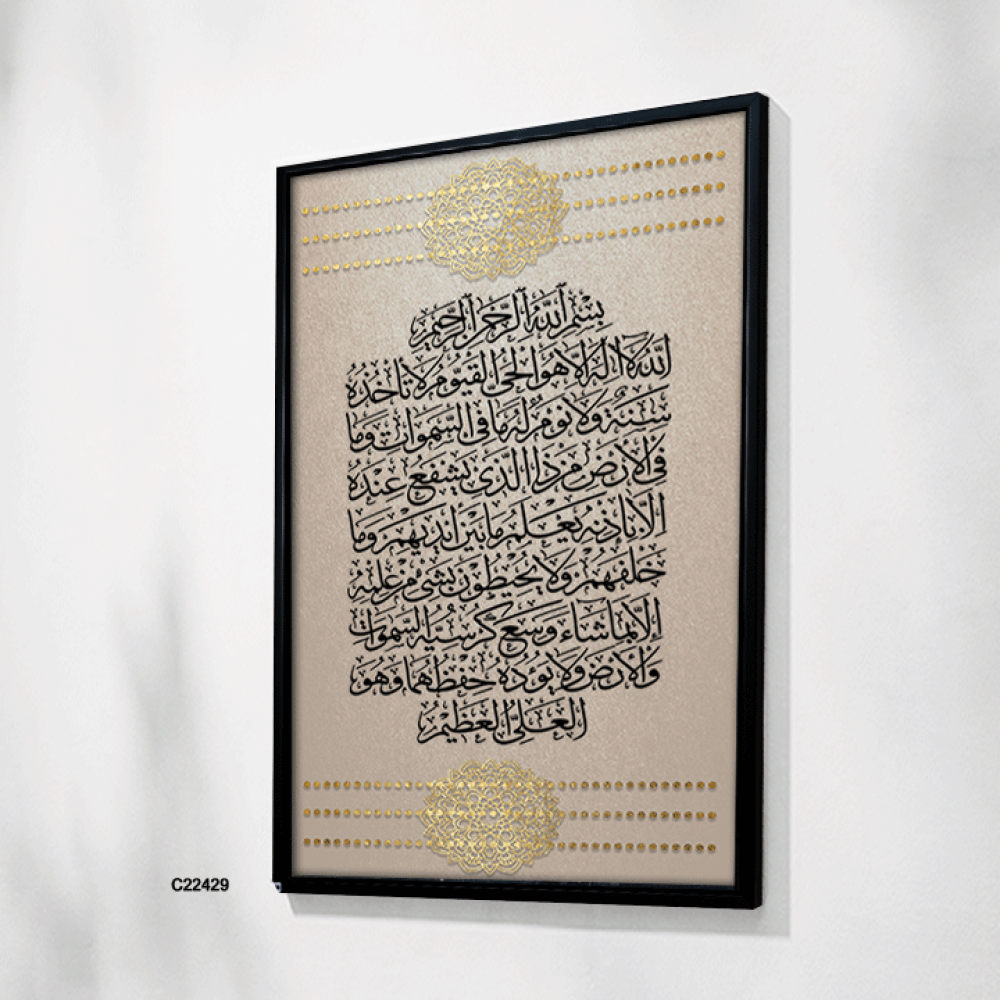 بسم الله الرحمن الرحيم
الله لا اله الا هو الحي القيوم لا تاخذه
سنة ولا نوم له ما في السموات وما
في الارض من ذا الذي يشفع عنده
الا باذنه يعلم ما بين ايديهم وما
خلفهم ولا يحيطون بشئ من علمه
الا بما شاء وسع كرسيه السموات
والارض ولا يؤده حفظهما وهو
العلي العظيم
C22429